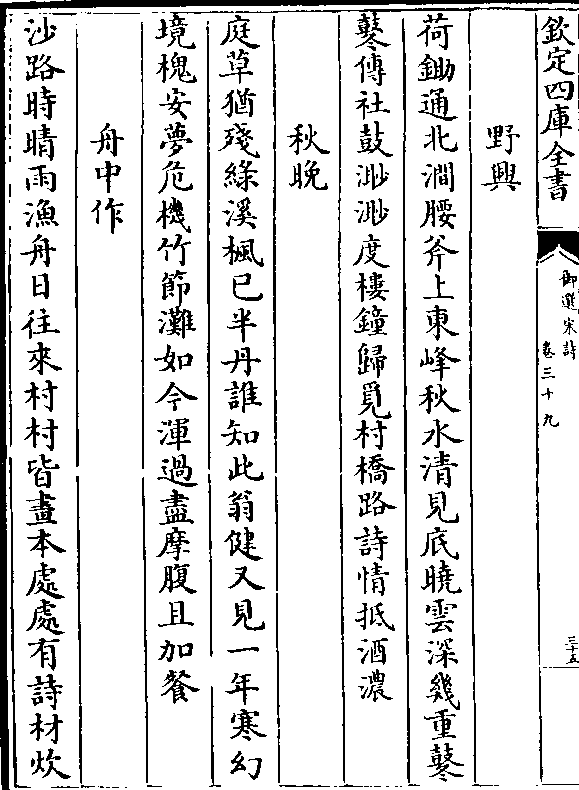 欽定四庫全書
御選宋詩
卷三十九
三十五
野興
荷鋤通北澗腰斧上東峰秋水清見底曉雲深幾重鼕
鼕傳社鼓渺渺度樓鐘歸覓村橋路詩情抵酒濃
秋晚
庭草猶殘綠溪楓已半丹誰知此翁健又見一年寒幻
境槐安夢危機竹節灘如今渾過盡摩腹且加餐
舟中作
沙路時晴雨漁舟日往來村村皆畫本處處有詩材炊